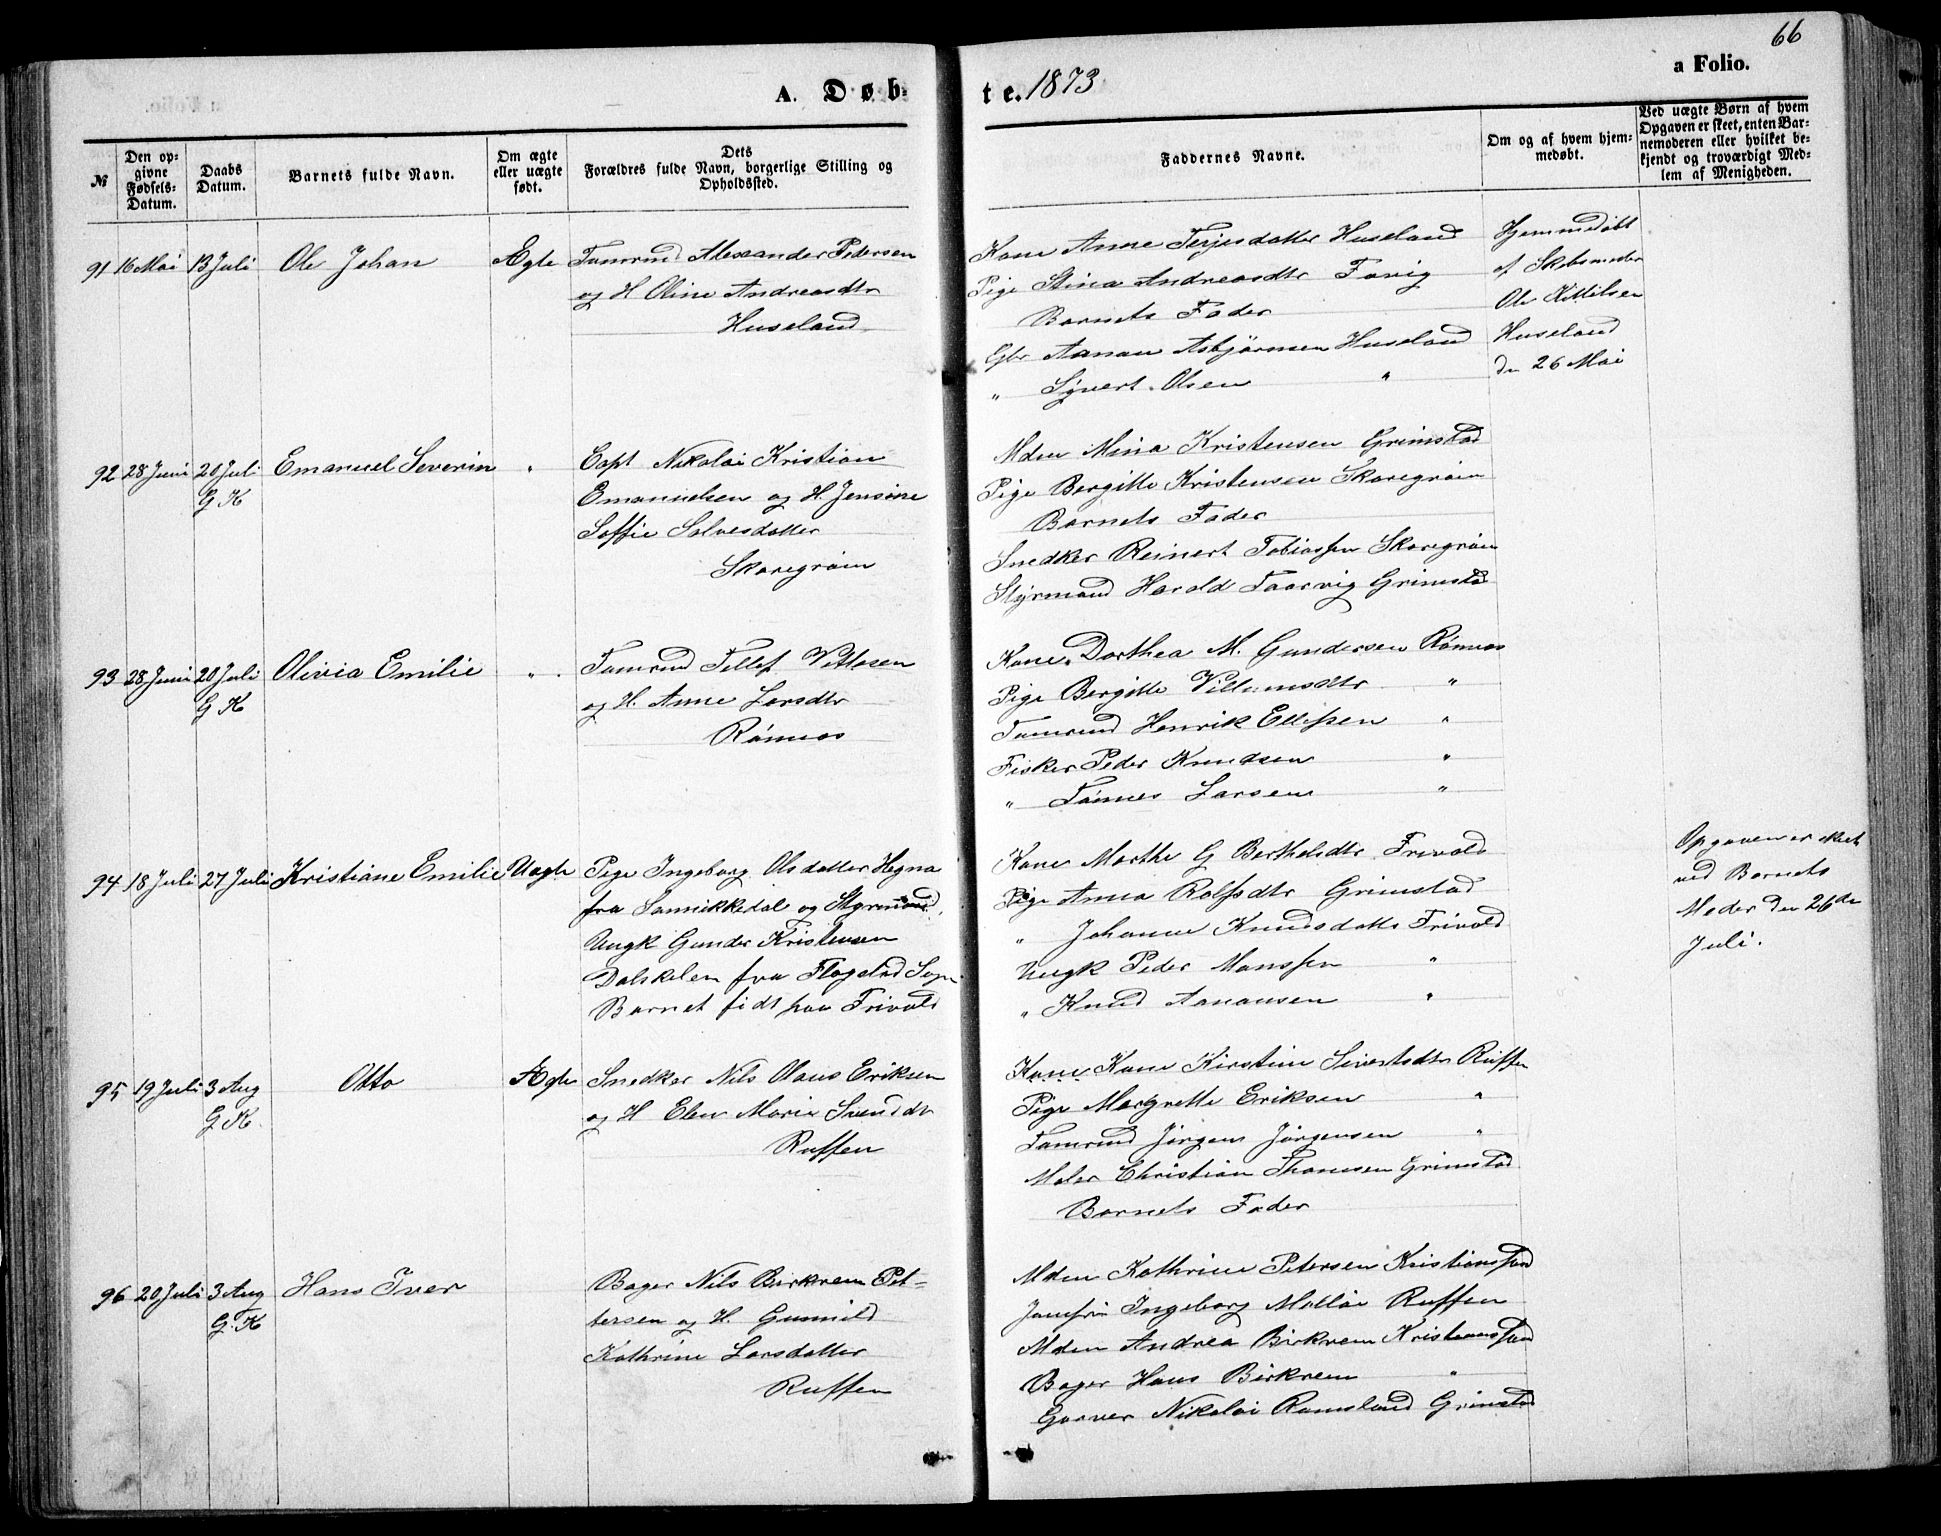 66
A. Døb-
te. 1873
a Folio.
№
Den op-
givne
Fødsels-
Datum.
Daabs
Datum.
Barnets fulde Navn.
Om ægte
eller uægte
født.
Dets
Forældres fulde Navn, borgerlige Stilling og
Opholdssted.
Faddernes Navne.
Om og af hvem hjem-
medøbt.
Ved uægte Børn af hvem
Opgaven er skeet, enten Bar-
nemoderen eller hvilket be-
kjendt og troværdigt Med-
lem af Menigheden.
91 16 Mai 13 Juli Ole Johan Ægte
Tømmd Alexander Pedersen
og H Oline Andreasdtr
Huseland
Kone Anne Terjesdatter Huseland
Pige Stina Andreasdtr Favig
Barnets Fader
Gbr Aanon Asbjörnsen Huseland
" Syvert Olsen "
Hjemmedøbt
af Skibsmeder
Ole Killilsen
Huseland
den 26 Mai
92 28 Juni 20 Juli Emanuel Severin "
G K
Capt Nikolai Kristian
Emanuelsen og H. Jensine
Soffie Salvesdatter
Skaregrøm
Mden Mina Kristensen Grimstad
Pige Bergitte Kristensen Skaregrøm
Barnets Fader
Snedker Reinert Tobiassen Skaregrøm
Styrmand Harald Taarvig Grimstad
93 28 Juni 20 Juli Olivia Emilie "
G K
Tømmd Tellef
og H. Anne Larsdtr
Rønnes
Kone Dorthea M. Gundersen Rønnes
Pige Bergitte Villumsdtr "
Tømmd Henrik Ellefsen "
Fisker Peder Knudsen "
" Tønnes Larsen "
94 18 Juli 27 Juli Kristiane Emilie Uægte
Pige Ingeborg Olsdatter Hegna
fra Sannikkedal og Styrmand,
Ungk Gunder Kristensen
Dalskilen fra Flagstad Sogn
Barnet født paa Frivold
Kone Marthe G Bertheldtr Frivold
Pige Anna Rolfsdtr Grimstad
" Johanne Knudsdatter Frivold
Ungk Peder Monssen "
" Knud Aanonsen "
Opgaven er skeet
ved Barnets
Moder den 26de
Juli.
95 19 Juli 3 Aug Otto Ægte
G. K.
Snedker Nils Olaus Eriksen
og H Elen Marie Svendsdtr
Roffen
Kone Kirstine Sivertsdtr Roffen
Pige Margrette Eriksen "
Tømmd Jörgen Jörgensen "
Maler Christian Thomsen Grimstad
Barnets Fader
96 20 Juli 3 Aug Hans Iver
G. K
Bager Nils Birkrem Pet-
tersen og H. Gunnild
Kathrine Larsdatter
Roffen
Mden Kathrine Petersen Kristianssand
Jomfru Ingeborg Mollöe Roffen
Mden Andrea Birkrem Kristianssand
Bager Hans Birkrem "
Garver Nikolai Ramsland Grimstad